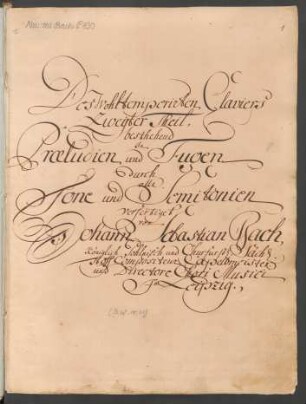 Mus. ms. Bach P 430
1
Des Wohltemperirten Claviers
Zweyter Theil,
bestehend
in
Præludien und Fugen
durch
alle
Tone und Semitonien
verfertiget
von
Johann Sebastian Bach,
Königlich Pohlnisch und Churfürstl. Sächs.
Hoff Compositeur, Capellmeister
und Directore Chori Musici
in Leipzig.